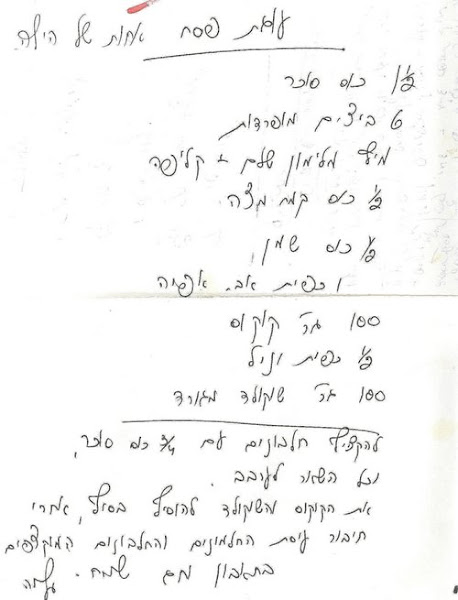 עוגת פסח אחות של הילה
1½ כוס סוכר
6 ביצים מופרדות
מיץ מלימון שלם + קליפה
½ כוס קמח מצה
½ כוס שמן
1 כפית אב. אפיה
100 גר' קוקוס
½ כפית וניל
100 גר' שוקולד מגורד
להקציף חלבונים עם ¾ כוס סוכר,
וכל השאר לערבב.
את הקוקוס והשוקולד להוסיף בסוף, אחרי
חיבור עיסת החלמונים והחלבונים המוקצפים
בתאבון וחג שמח